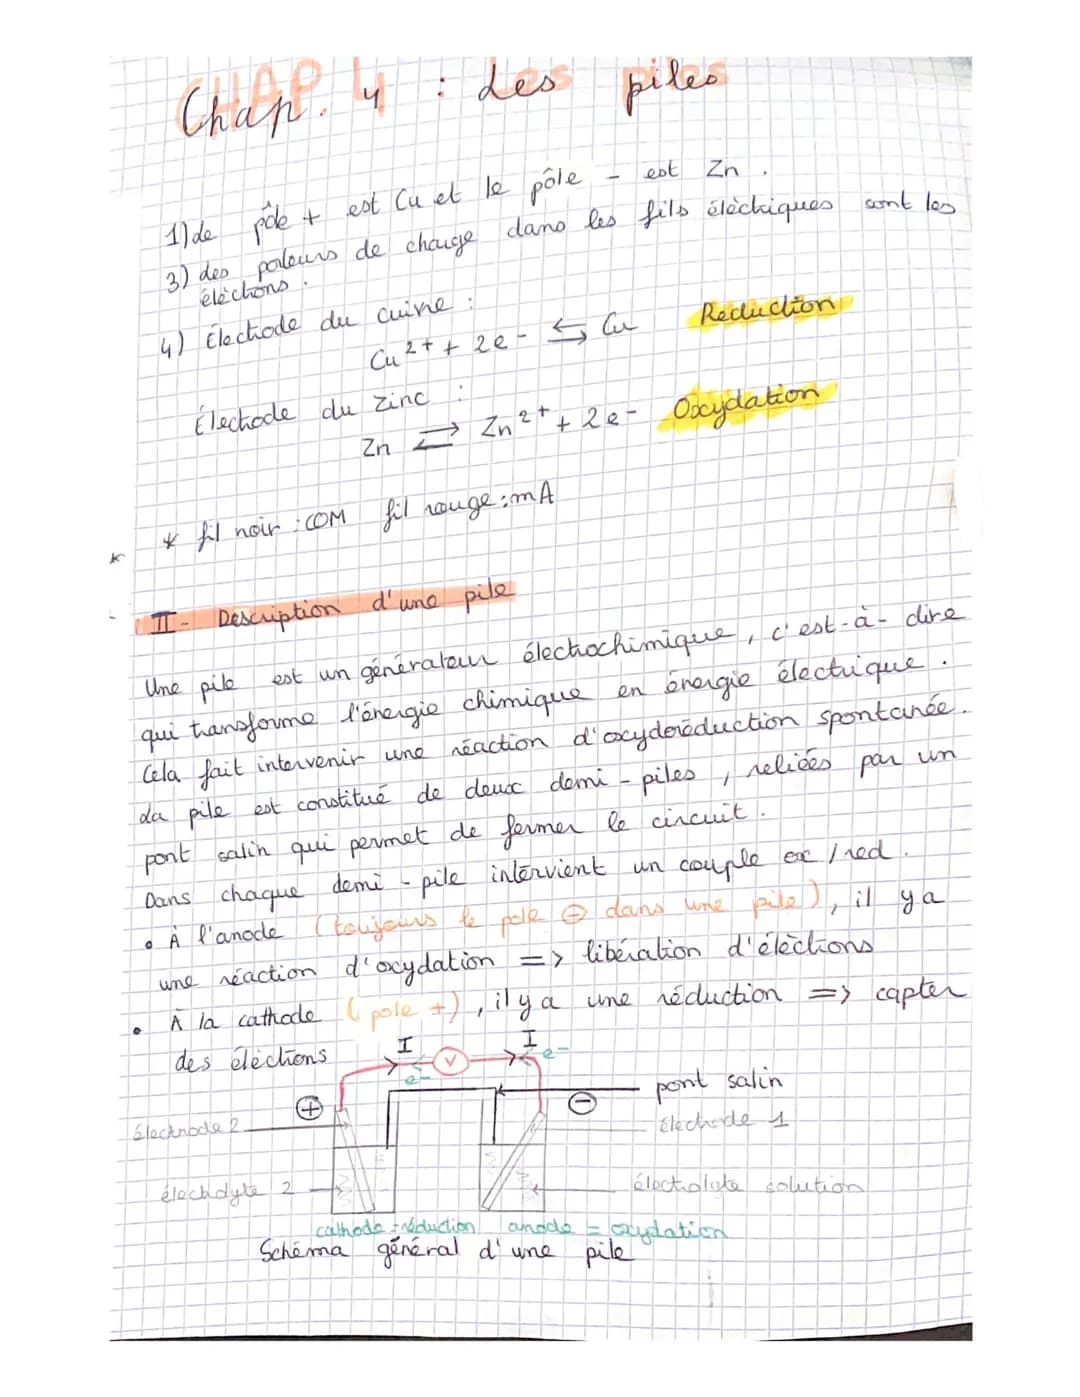 Chap. 4 : Les piles
1) Le pôle + est Cu et le pôle - est Zn .
3) Les porteurs de charge dans les fils éléctriques sont les
éléctrons .
4) Électrode du cuivre :
Cu2+ + 2e- ⇆ Cu Réduction
Électrode du zinc :
Zn ⇄ Zn2+ + 2e- Oxydation
* fil noir : COM fil rouge : mA
*
II - Description d'une pile
Une pile est un générateur électrochimique, c'est-à-dire
qui transforme l'énergie chimique en énergie électrique .
Cela fait intervenir une réaction d'oxydoréduction spontanée.
La pile est constitué de deux demi-piles, reliées par un
pont salin qui permet de fermer le circuit .
Dans chaque demi-pile intervient un couple ox/red .
• À l'anode (toujours le pole ⊕ dans une pile), il ya
une réaction d'oxydation => libération d'éléctrons
• À la cathode (pole +), il y a une réduction => capter
des éléctrons
I I
e- V e-
⊕ ⊖ pont salin
électrode 2 Électrode 1
électrolyte 2 électrolyte solution
cathode = réduction anode = oxydation
Schéma général d'une pile